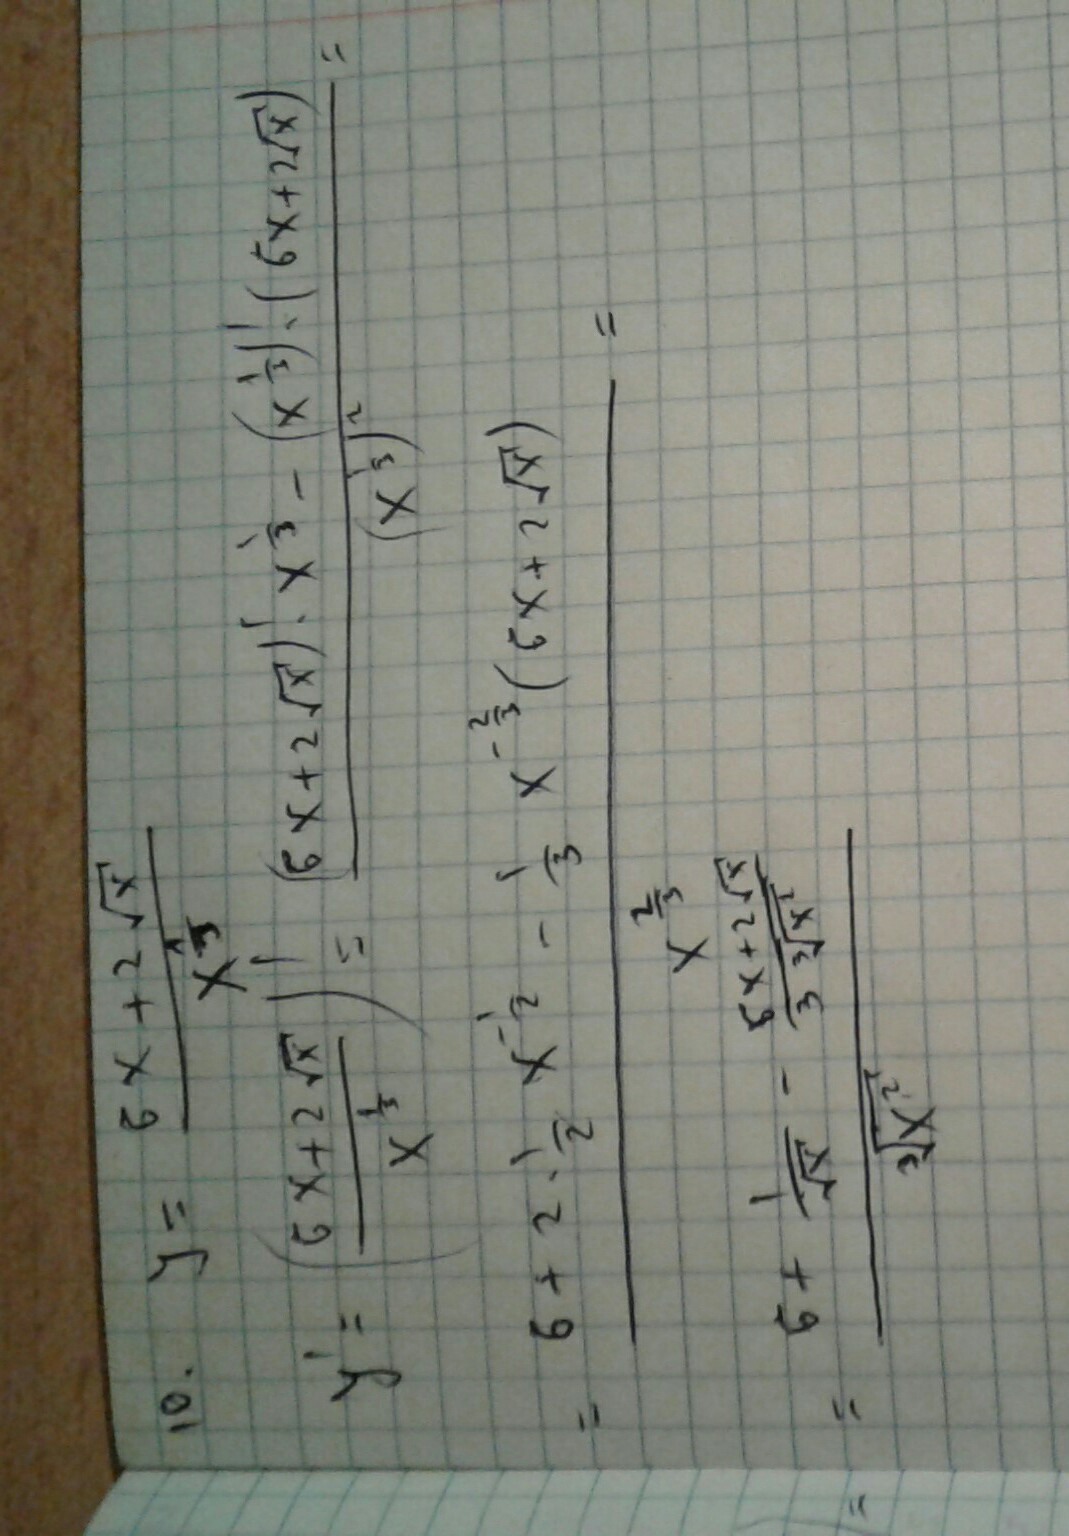 10. y = (6x + 2√x) / x^(1/3)
y' = ((6x + 2√x) / x^(1/3))' = ((6x + 2√x)' · x^(1/3) - (x^(1/3))' · (6x + 2√x)) / (x^(1/3))^2 =
= (6 + 2 · 1/2 x^(-1/2) - 1/3 x^(-2/3) (6x + 2√x)) / x^(2/3) =
= (6 + 1/√x - (6x + 2√x) / (3 ∛x^2)) / ∛x^2
=